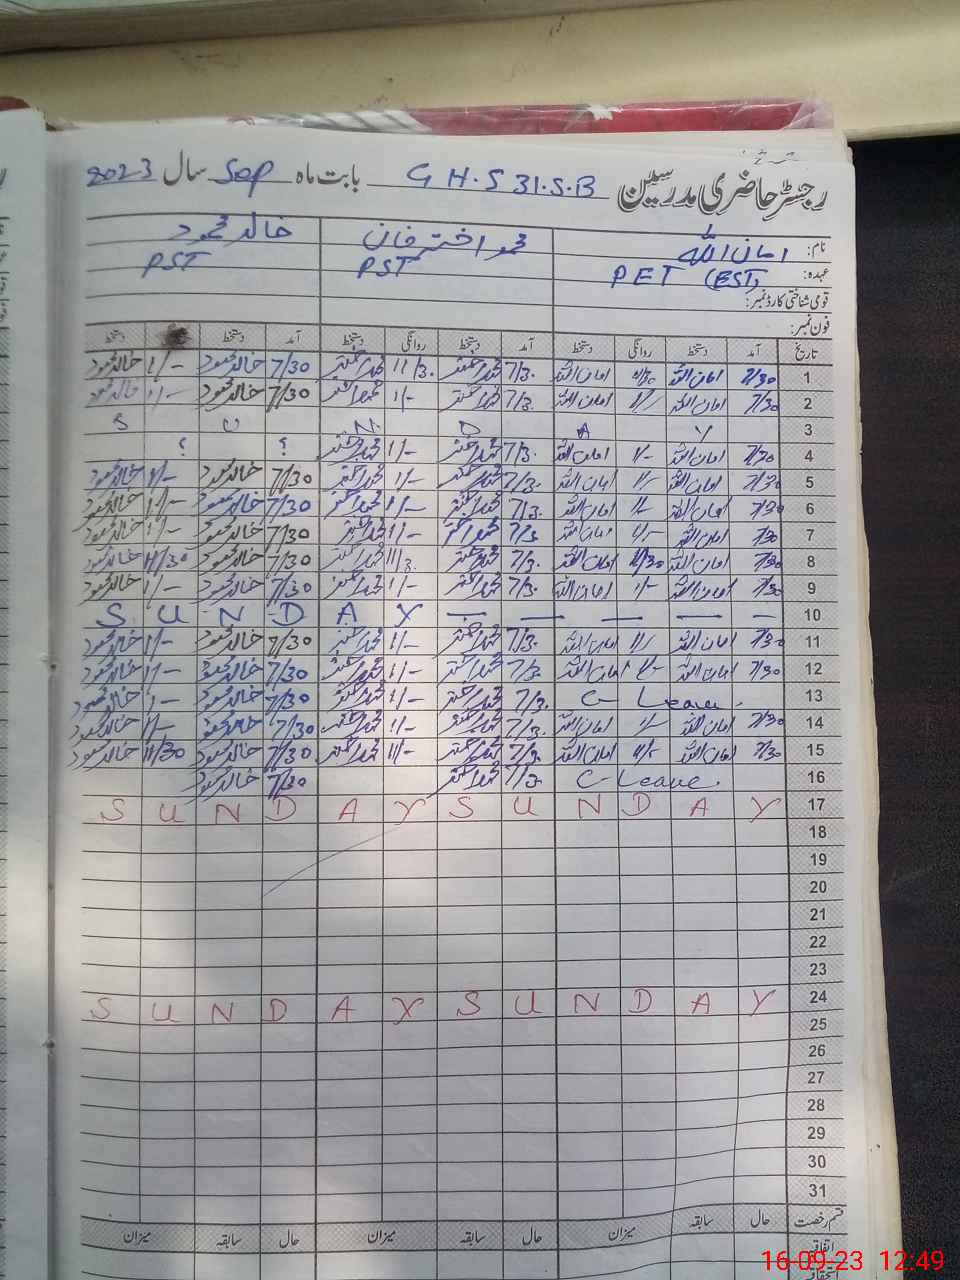 رجسٹر حاضری مدرسین G.H.S 31.S.B بابت ماہ Sep سال 2023
نام: امان اللہ محمد اختر خان خالد محمود
عہدہ: PET (EST) PST PST
قومی شناختی کارڈ نمبر:
فون نمبر:
تاریخ آمد دستخط روانگی دستخط آمد دستخط روانگی دستخط آمد دستخط دستخط
1 7/30 امان اللہ امان اللہ 7/3. 11/3. 7/30 خالد محمود 1/- خالد محمود
2 7/30 امان اللہ 1/- امان اللہ 7/3. 1/- 7/30 خالد محمود 1/- خالد محمود
3 S U N D A Y
4 7/30 امان اللہ 1/- امان اللہ 7/3. 1/- ? ?
5 7/30 امان اللہ 1/- امان اللہ 7/3. 1/- 7/30 خالد محمود 1/- خالد محمود
6 7/30 امان اللہ 1/- امان اللہ 7/3. 1/- 7/30 خالد محمود 1/- خالد محمود
7 7/30 امان اللہ 1/- امان اللہ 7/3. 1/- 7/30 خالد محمود 1/- خالد محمود
8 7/30 امان اللہ 11/30 امان اللہ 7/3. 11/3. 7/30 خالد محمود 11/30 خالد محمود
9 7/30 امان اللہ 1/- امان اللہ 7/3. 1/- 7/30 خالد محمود 1/- خالد محمود
10 S U N D A Y — — — — — —
11 7/30 امان اللہ 1/- امان اللہ 7/3. 1/- 7/30 خالد محمود 1/- خالد محمود
12 7/30 امان اللہ 1/- امان اللہ 7/3. 1/- 7/30 خالد محمود 1/- خالد محمود
13 C-Leave. 7/3. 1/- 7/30 خالد محمود 1/- خالد محمود
14 7/30 امان اللہ 1/- امان اللہ 7/3. 1/- 7/30 خالد محمود 1/- خالد محمود
15 7/30 امان اللہ 11/- امان اللہ 7/3. 11/- 7/30 خالد محمود 11/30 خالد محمود
16 C-Leave. 7/3. 7/30 خالد محمود
17 S U N D A Y S U N D A Y
18
19
20
21
22
23
24 S U N D A Y S U N D A Y
25
26
27
28
29
30
31
قسم رخصت حال سابقہ میزان حال سابقہ میزان حال سابقہ میزان
اتفاقی
16-09-23 12:49